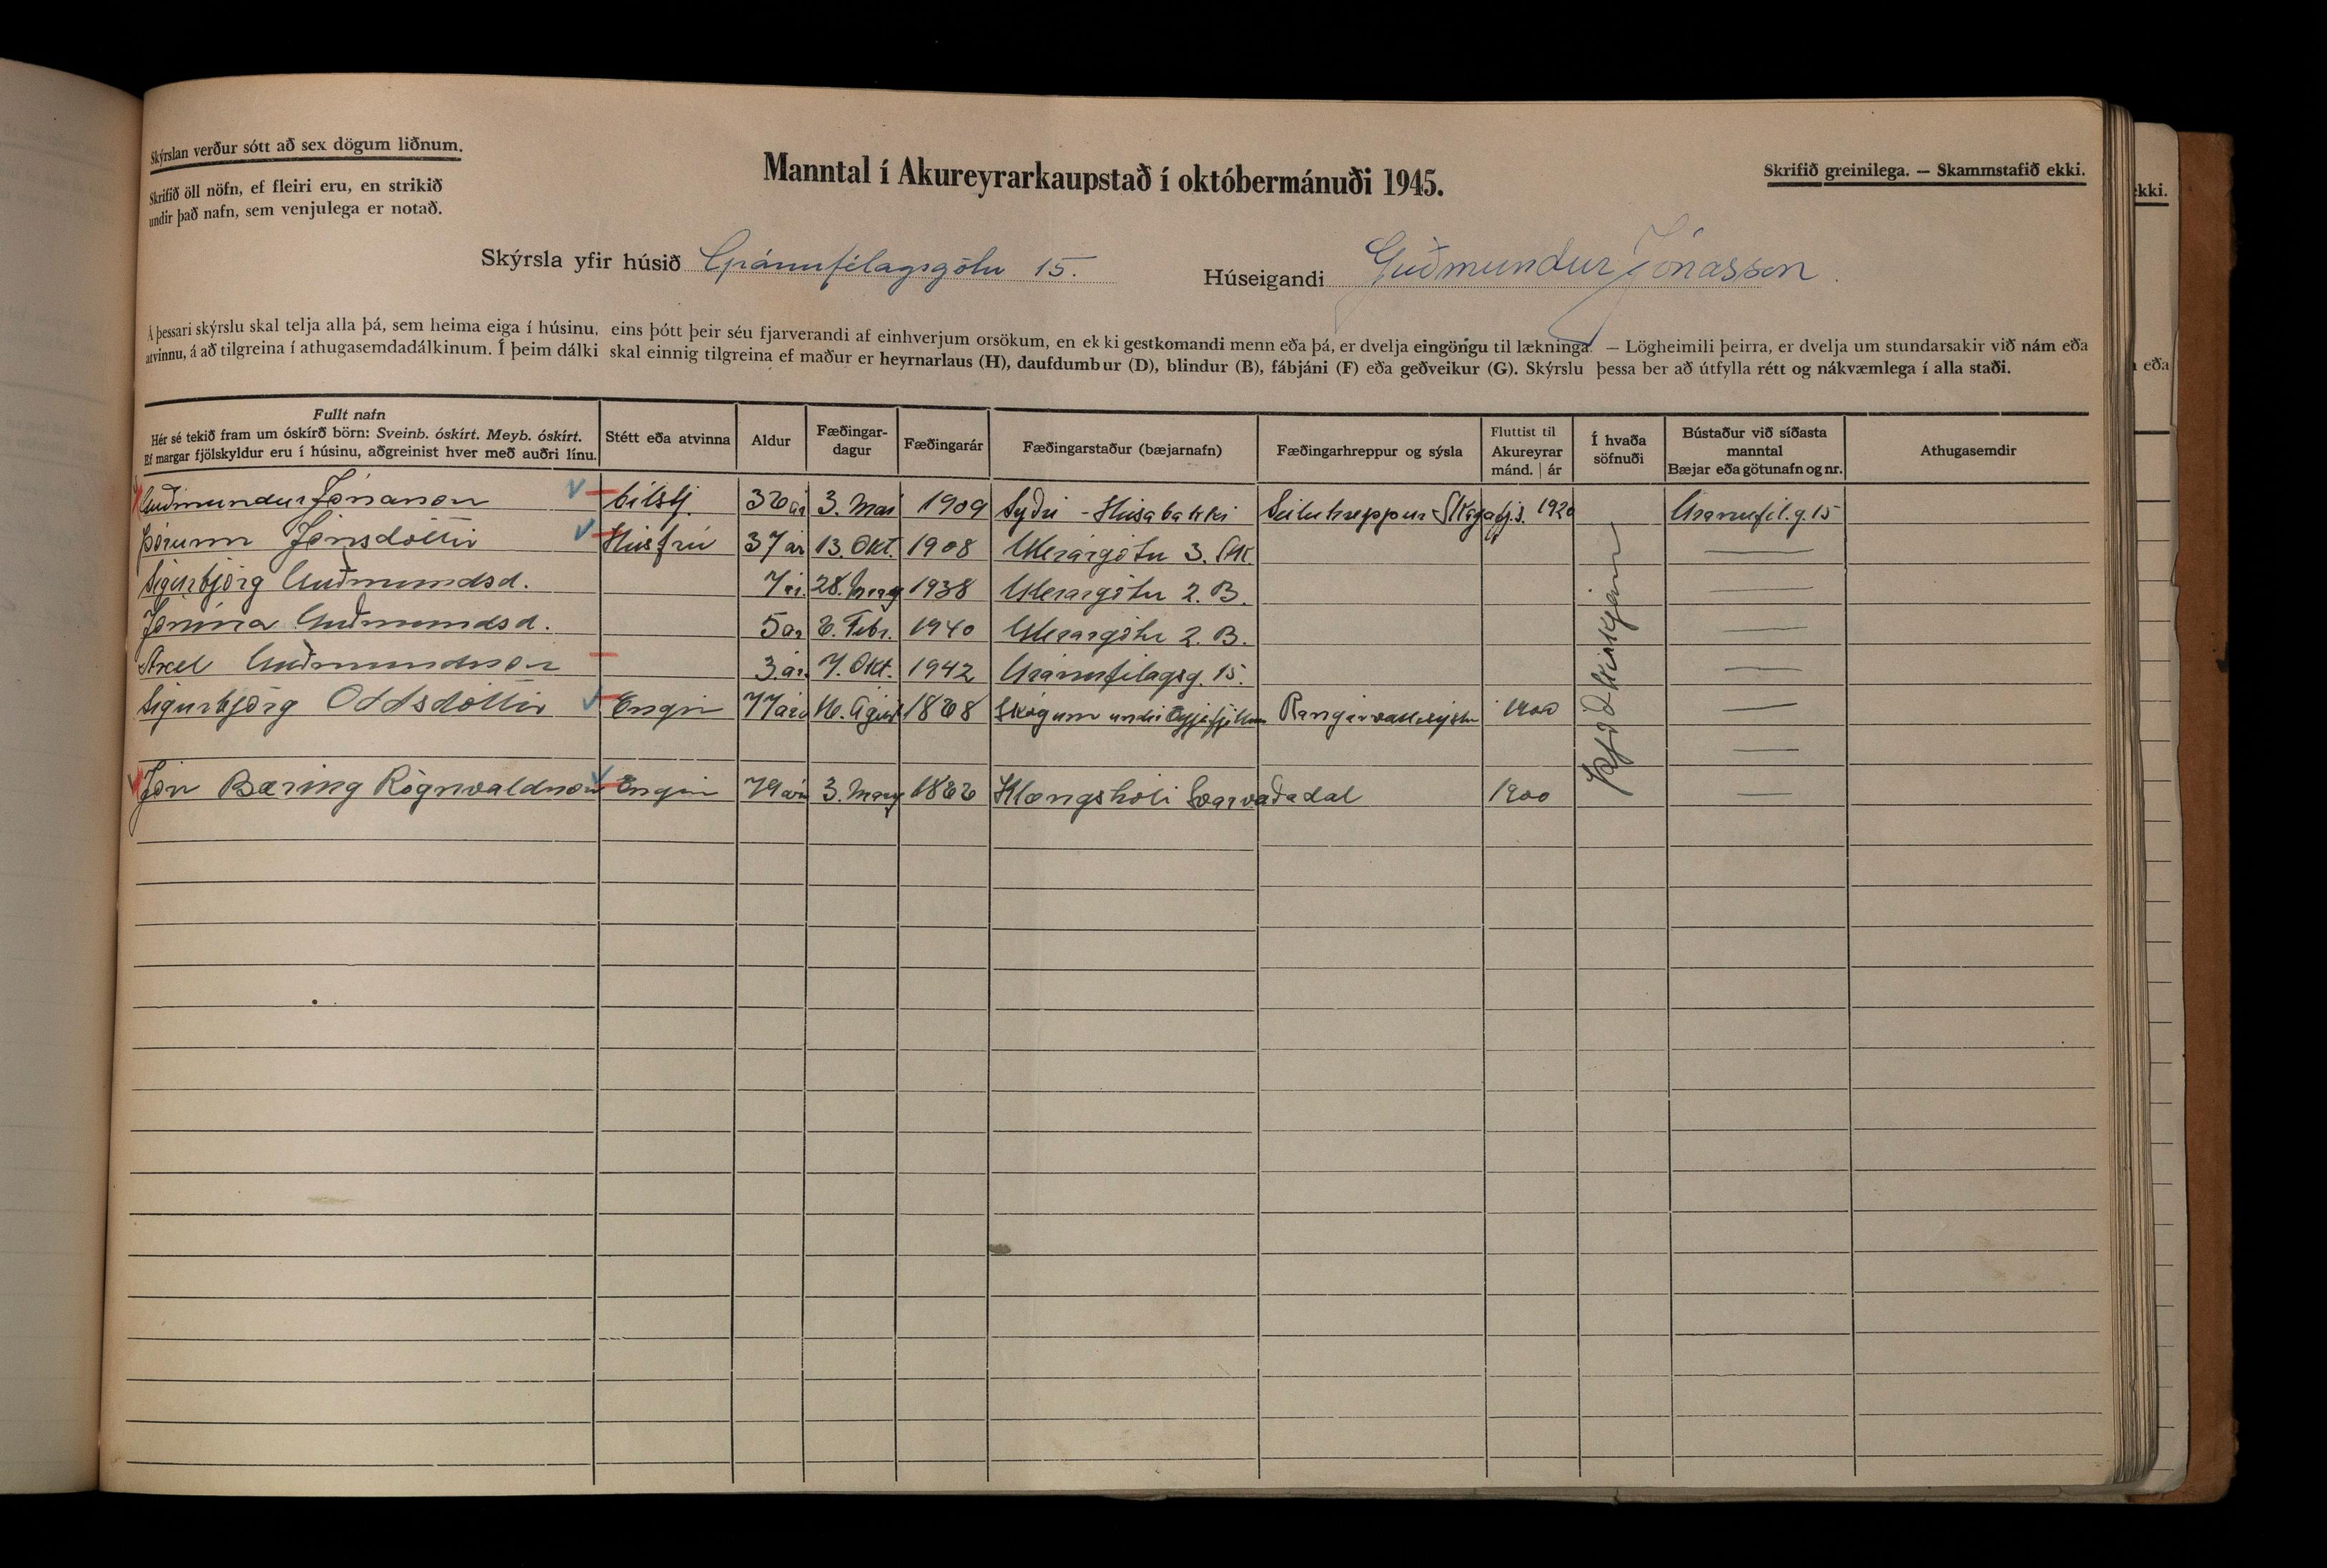 Skýrslan verður sótt að sex dögum liðnum.
Skrifið öll nöfn, ef fleiri eru, en strikið
undir það nafn, sem venjulega er notað.
Manntal í Akureyrarkaupstað í októbermánuði 1945.
Skrifið greinilega. — Skammstafið ekki.
ekki.
Skýrsla yfir húsið Gránufélagsgötu 15.
Húseigandi Guðmundur Jónasson.
Á þessari skýrslu skal telja alla þá, sem heima eiga í húsinu, eins þótt þeir séu fjarverandi af einhverjum orsökum, en ekki gestkomandi menn eða þá, er dvelja eingöngu til lækninga. — Lögheimili þeirra, er dvelja um stundarsakir við nám eða
atvinnu, á að tilgreina í athugasemdadálkinum. Í þeim dálki skal einnig tilgreina ef maður er heyrnarlaus (H), daufdumbur (D), blindur (B), fábjáni (F) eða geðveikur (G). Skýrslu þessa ber að útfylla rétt og nákvæmlega í alla staði.
eða
Fullt nafn
Hér sé tekið fram um óskírð börn: Sveinb. óskírt. Meyb. óskírt.
Ef margar fjölskyldur eru í húsinu, aðgreinist hver með auðri línu.
Stétt eða atvinna
Aldur
Fæðingar-
dagur
Fæðingarár
Fæðingarstaður (bæjarnafn)
Fæðingarhreppur og sýsla
Fluttist til
Akureyrar
mánd. | ár
Í hvaða
söfnuði
Bústaður við síðasta
manntal
Bæjar eða götunafn og nr.
Athugasemdir
Guðmundur Jónasson bílstj. 36 ár 3. Mai 1909 Syðri-Húsabakki Seiluhreppur Skagafj.s. 1920 Gránufél.g. 15
Þórunn Jónsdóttir Húsfrú 37 ár 13. Okt. 1908 Glerárgötu 3. Ak.
Sigurbjörg Guðmundsd. 7 ár 1938 Glerárgötu 2. B.
Jónína Guðmundsd. 5 ár 6. Febr. 1940 Glerárgötu 2. B.
Axel Guðmundsson 3 ár. 7. Okt. 1942 Gránufélagsg. 15.
Sigurbjörg Oddsdóttir Engin 77 ára 16. Ágúst 1868 Skógum undir Eyjafjöllum Rangárvallasýslu 1900
Jón Bæring Rögnvaldsson Engin 79 ára 3. 1866 Klængshóli Svarvaðadal 1900
Þjóðkirkjan